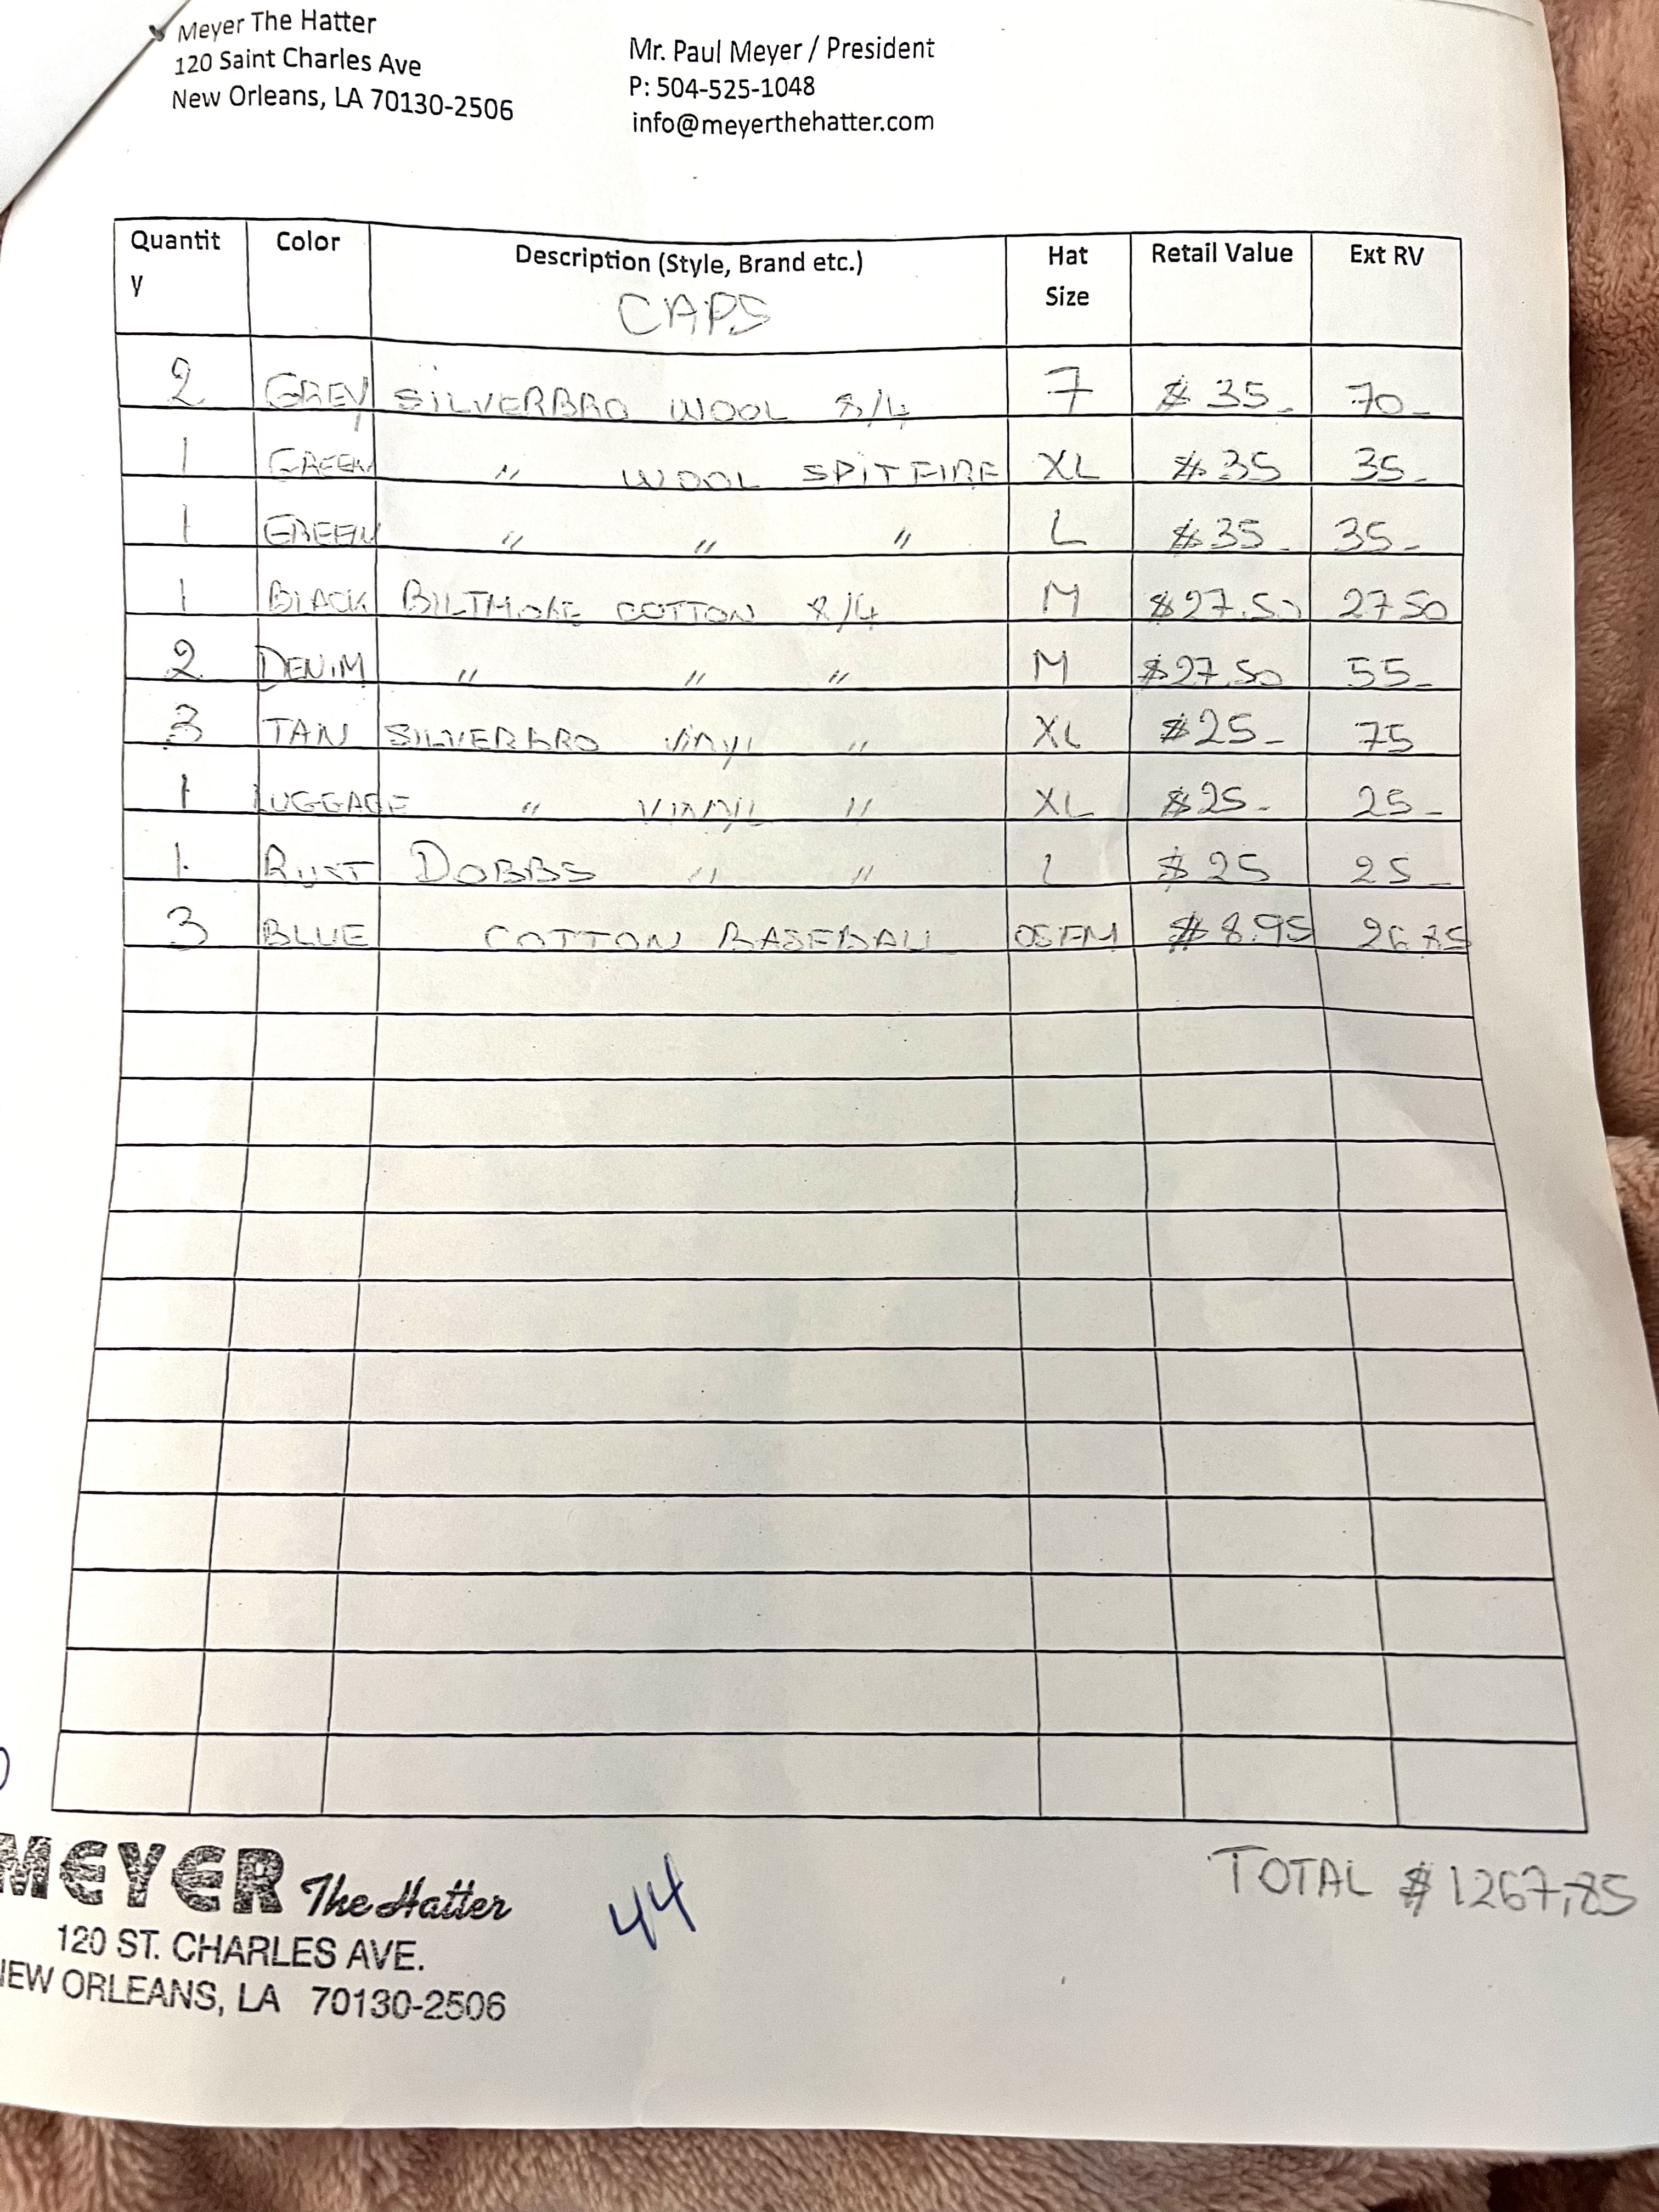 Meyer The Hatter
120 Saint Charles Ave
New Orleans, LA 70130-2506
Mr. Paul Meyer / President
P: 504-525-1048
info@meyerthehatter.com
Quantity Color Description (Style, Brand etc.) Hat Size Retail Value Ext RV
CAPS
2 GREY SILVERBRO WOOL 8/4 7 $ 35- 70-
1 GREEN " WOOL SPITFIRE XL $ 35 35-
1 GREEN " " " L $ 35- 35-
1 BLACK BILTMORE COTTON 8/4 M $27.50 27 50
2 DENIM " " " M $27.50 55-
3 TAN SILVERBRO VINYL " XL $25- 75
1 LUGGAGE " VINYL " XL $25- 25-
1 RUST DOBBS " " L $ 25 25-
3 BLUE COTTON BASEBALL OSFM $ 8.95 26.85
TOTAL $ 1267.85
MEYER The Hatter
120 ST. CHARLES AVE.
NEW ORLEANS, LA 70130-2506
44